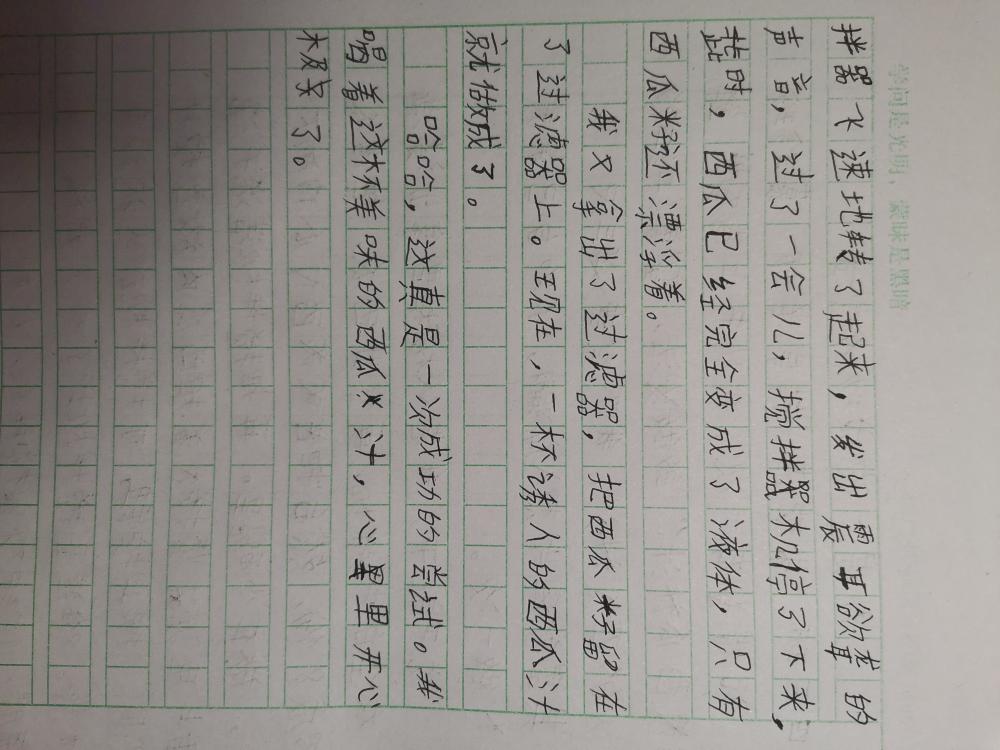 学问是光明，蒙昧是黑暗
拌器飞速地转了起来，发出震耳欲聋的
声音，过了一会儿，搅拌器机停了下来，
时，西瓜已经完全变成了液体，只有
西瓜籽还漂浮着。
我又拿出了过滤器，把西瓜籽留在
了过滤器上。现在，一杯诱人的西瓜汁
就做成了。
哈哈，这真是一次成功的尝试。我
喝着这杯美味的西瓜汁，心里里开心
极了。